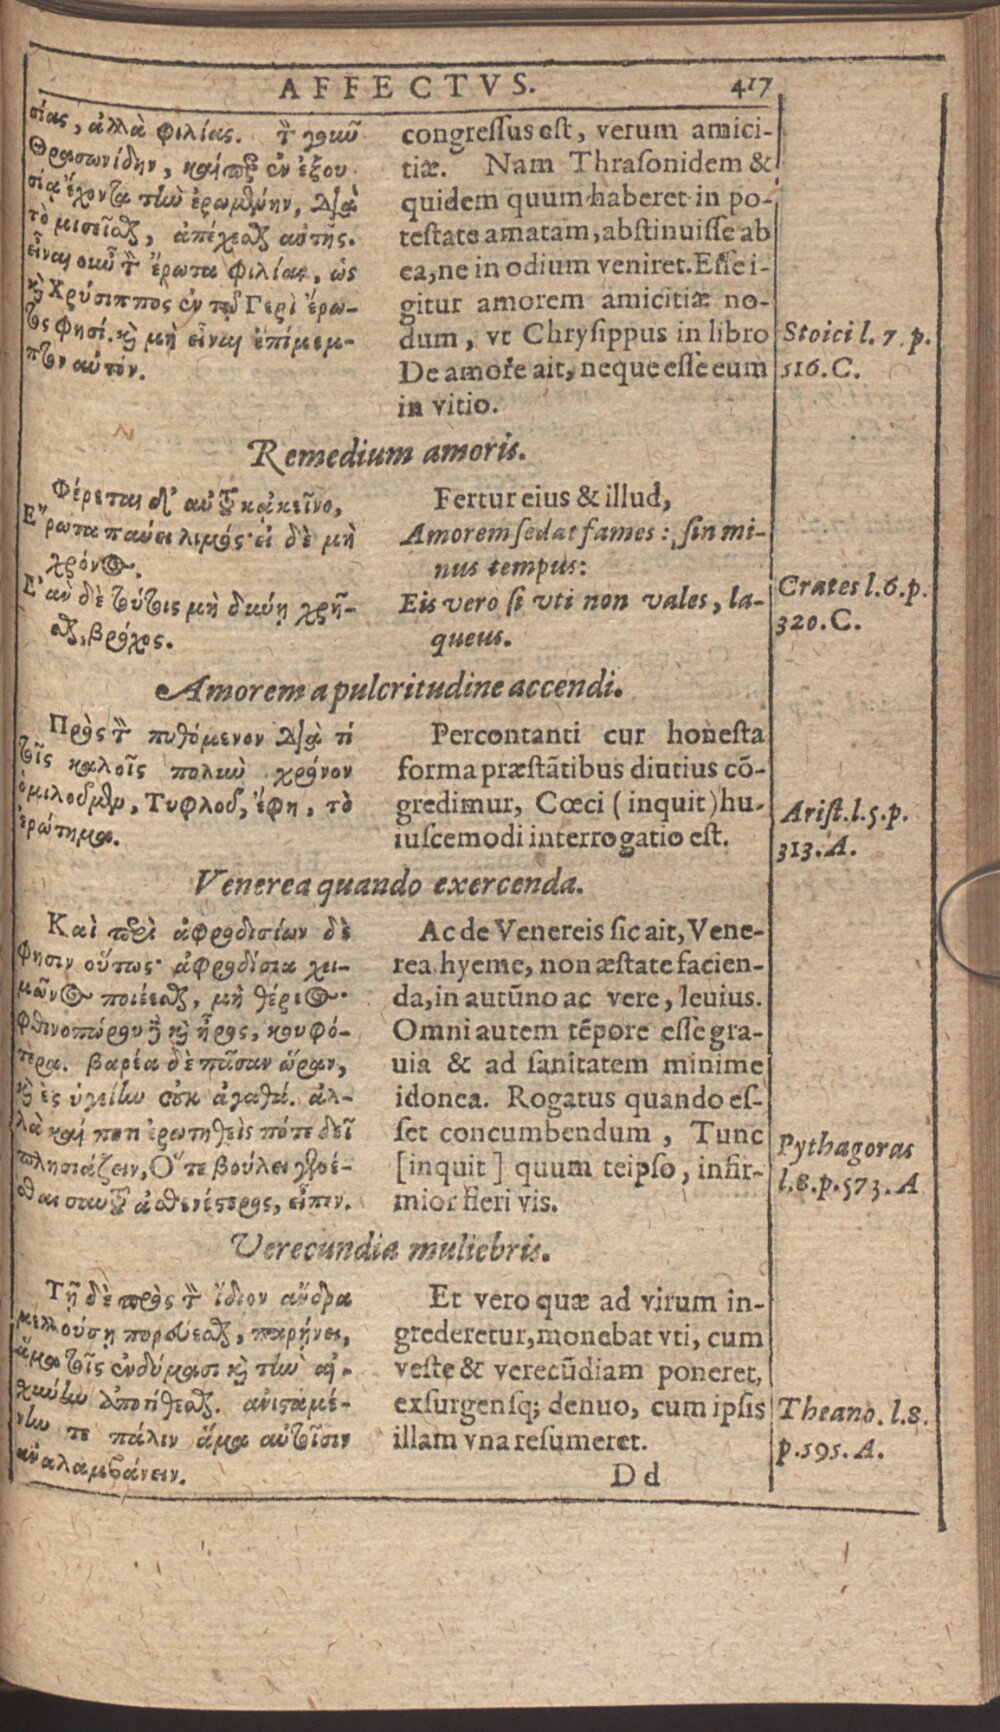 AFFECTVS. 417
σίας, ἀλλὰ φιλίας. τὸν γοῦν
Θρασωνίδην, καίπερ ἐν ἐξου
σίᾳ ἔχοντα τὴν ἐρωμένην, διὰ
τὸ μισεῖσθαι, ἀπέχεσθαι αὐτῆς.
εἶναι οὖν τὸν ἔρωτα φιλίας, ὡς
καὶ Χρύσιππος ἐν τῷ Περὶ ἔρω-
τός φησί. καὶ μὴ εἶναι ἐπίμεμ-
πτον αὐτόν.
congreſſus eſt, verum amici-
tiæ. Nam Thraſonidem &
quidem quum haberet in po-
teſtate amatam, abſtinuiſſe ab
ea, ne in odium veniret. Eſſe i-
gitur amorem amicitiæ no-
dum, vt Chryſippus in libro
De amore ait, neque eſſe eum
in vitio.
Stoici l. 7. p.
516. C.
Remedium amoris.
Φέρεται δ' αὐτοῦ κἀκεῖνο,
Ἔρωτα παύει λιμός· εἰ δὲ μὴ
χρόνος.
Ἐὰν δὲ τούτοις μὴ δύνῃ χρῆ-
σθαι, βρόχος.
Fertur eius & illud,
Amorem ſedat fames: ſin mi-
nus tempus:
Eis vero ſi vti non vales, la-
queus.
Crates l. 6. p.
320. C.
Amorem a pulcritudine accendi.
Πρὸς τὸν πυθόμενον διὰ τί
τοῖς καλοῖς πολιὼ χρόνον
ὁμιλοῦμεν, Τυφλοῦ, ἔφη, τὸ
ἐρώτημα.
Percontanti cur honeſta
forma præſtātibus diutius cō-
gredimur, Cœci (inquit) hu-
iuſcemodi interrogatio eſt.
Ariſt. l. 5. p.
313. A.
Venerea quando exercenda.
Καὶ περὶ ἀφροδισίων δὲ
φησὶν οὕτως· ἀφροδίσια χει-
μῶνος ποιέεσθαι, μὴ θέρεος·
φθινοπώρου δὲ καὶ ἦρος, κουφό-
τερα. βαρέα δὲ πᾶσαν ὥραν,
καὶ ἐς ὑγείην οὐκ ἀγαθά. ἀλ-
λὰ καί ποτ' ἐρωτηθεὶς πότε δεῖ
πλησιάζειν, Ὅτε βούλει γενέ-
σθαι σαυτοῦ ἀσθενέστερος, εἶπεν.
Ac de Venereis ſic ait, Vene-
rea hyeme, non æſtate facien-
da, in autūno ac vere, leuius.
Omni autem tēpore eſſe gra-
uia & ad ſanitatem minime
idonea. Rogatus quando eſ-
ſet concumbendum, Tunc
[inquit] quum teipſo, infir-
mior fieri vis.
Pythagoras
l. 8. p. 573. A
Verecundia muliebris.
Τῇ δὲ πρὸς τὸν ἴδιον ἄνδρα
μελλούσῃ πορεύεσθαι, παρῄνει,
ἅμα τοῖς ἐνδύμασι καὶ τὴν αἰ-
χύνην ἀποτίθεσθαι. ἀνισταμέ-
νην τε πάλιν ἅμα αὐτοῖσιν
ἀναλαμβάνειν.
Et vero quæ ad virum in-
grederetur, monebat vti, cum
veſte & verecūdiam poneret,
exſurgenſq; denuo, cum ipſis
illam vna reſumeret.
Theano. l. 8.
p. 595. A.
Dd